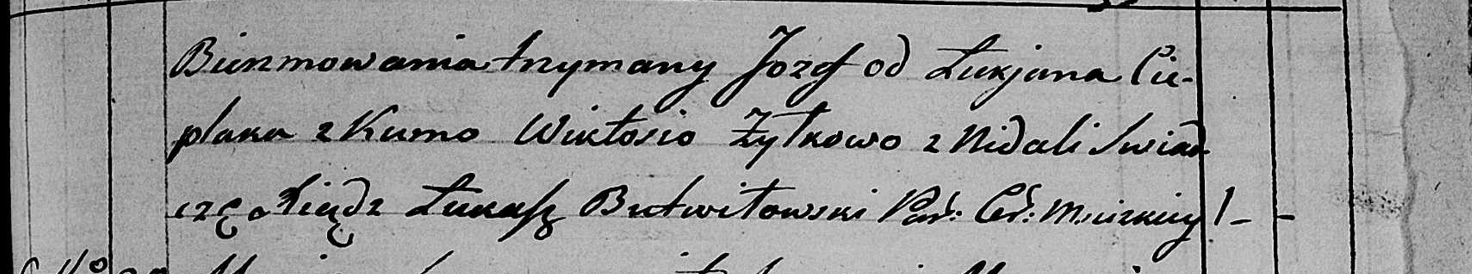 Bierzmowania trzymany Jozef od Łukjana Cie-
plaka z Kumo Wiktosio Żyłkowo z Nidali Swiad
czę Xiądz Łukasz Bretwiłowski Par: Cer: